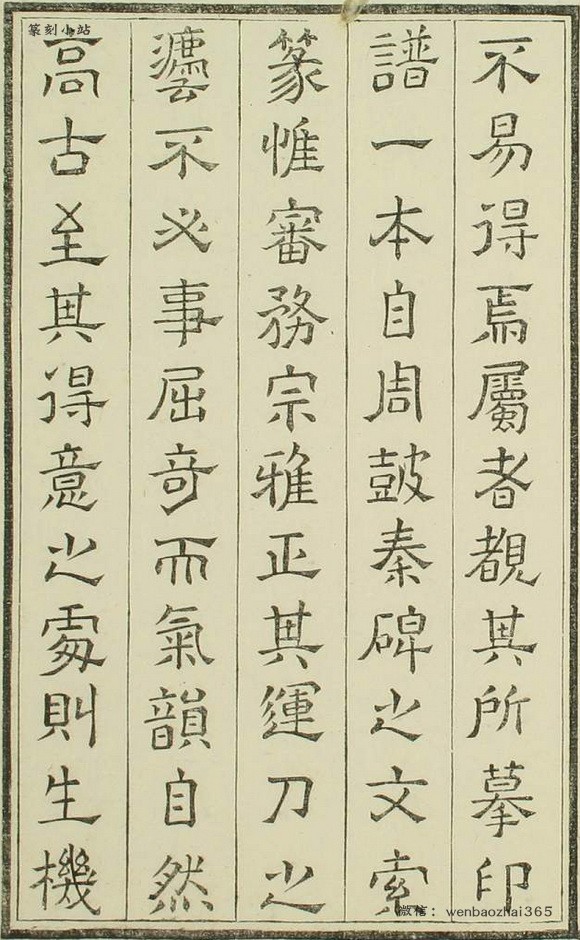 篆刻小站
不易得焉屬者覩其所摹印
譜一本自周鼓秦碑之文索
篆惟審務宗雅正其運刀之
灋不必事屈奇而氣韻自然
高古至其得意之處則生機
微信：wenbaozhai365